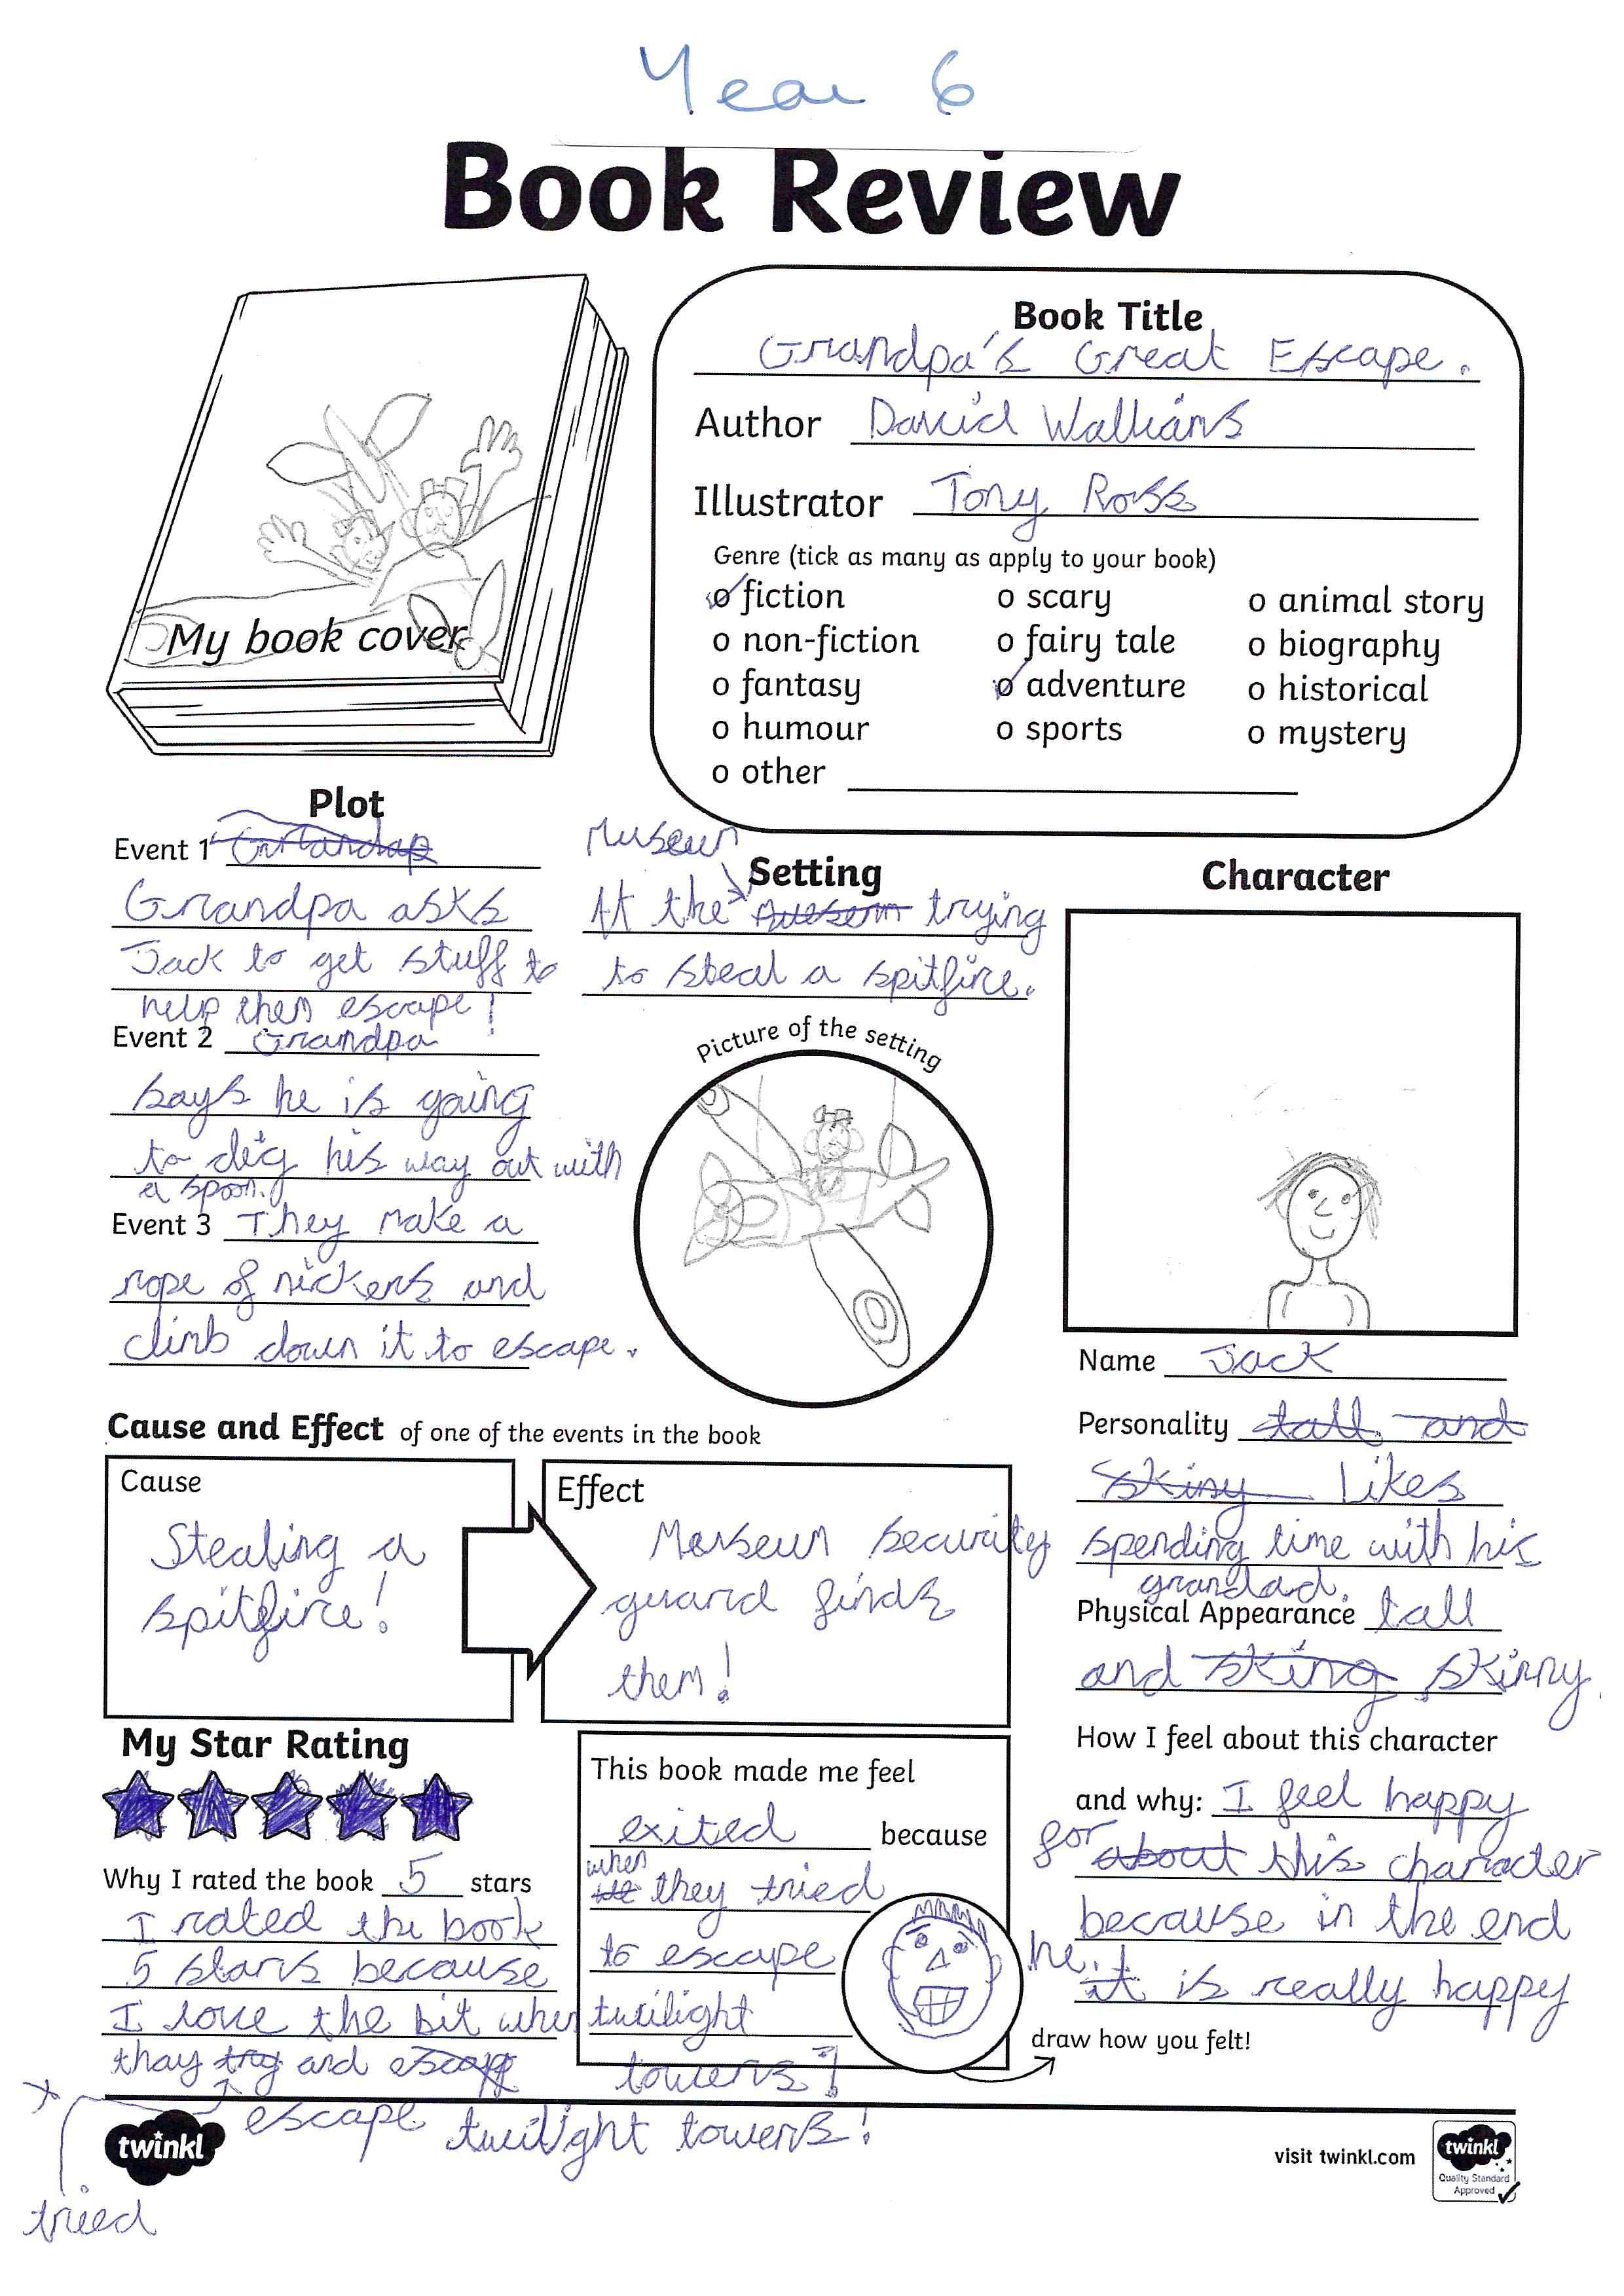 Year 6
Book Review
My book cover
Book Title
Grandpa's Great Escape.
Author David Walliams
Illustrator Tony Ross
Genre (tick as many as apply to your book)
o fiction
o non-fiction
o fantasy
o humour
o other
o scary
o fairy tale
o adventure
o sports
o animal story
o biography
o historical
o mystery
Plot
Event 1
Grandpa asks
Jack to get stuff to
help them escape!
Event 2 Grandpa
says he is going
to dig his way out with
a spoon.
Event 3 They make a
rope of nickers and
climb down it to escape.
Setting
Museum
At the trying
to steal a spitfire.
Picture of the setting
Character
Name Jack
Personality tall and
skiny Likes
spending time with his
grandad.
Physical Appearance tall
and skinny.
How I feel about this character
and why: I feel happy
for about this character
because in the end
he it is really happy
Cause and Effect of one of the events in the book
Cause
Stealing a
spitfire!
Effect
Museum security
guard finds
them!
My Star Rating
Why I rated the book 5 stars
I rated the book
5 stars because
I love the bit when
thay try and escape
tried
escape twilight towers!
This book made me feel
exited because
when
they tried
to escape
twilight
towers!
draw how you felt!
twinkl
visit twinkl.com
twinkl
Quality Standard
Approved